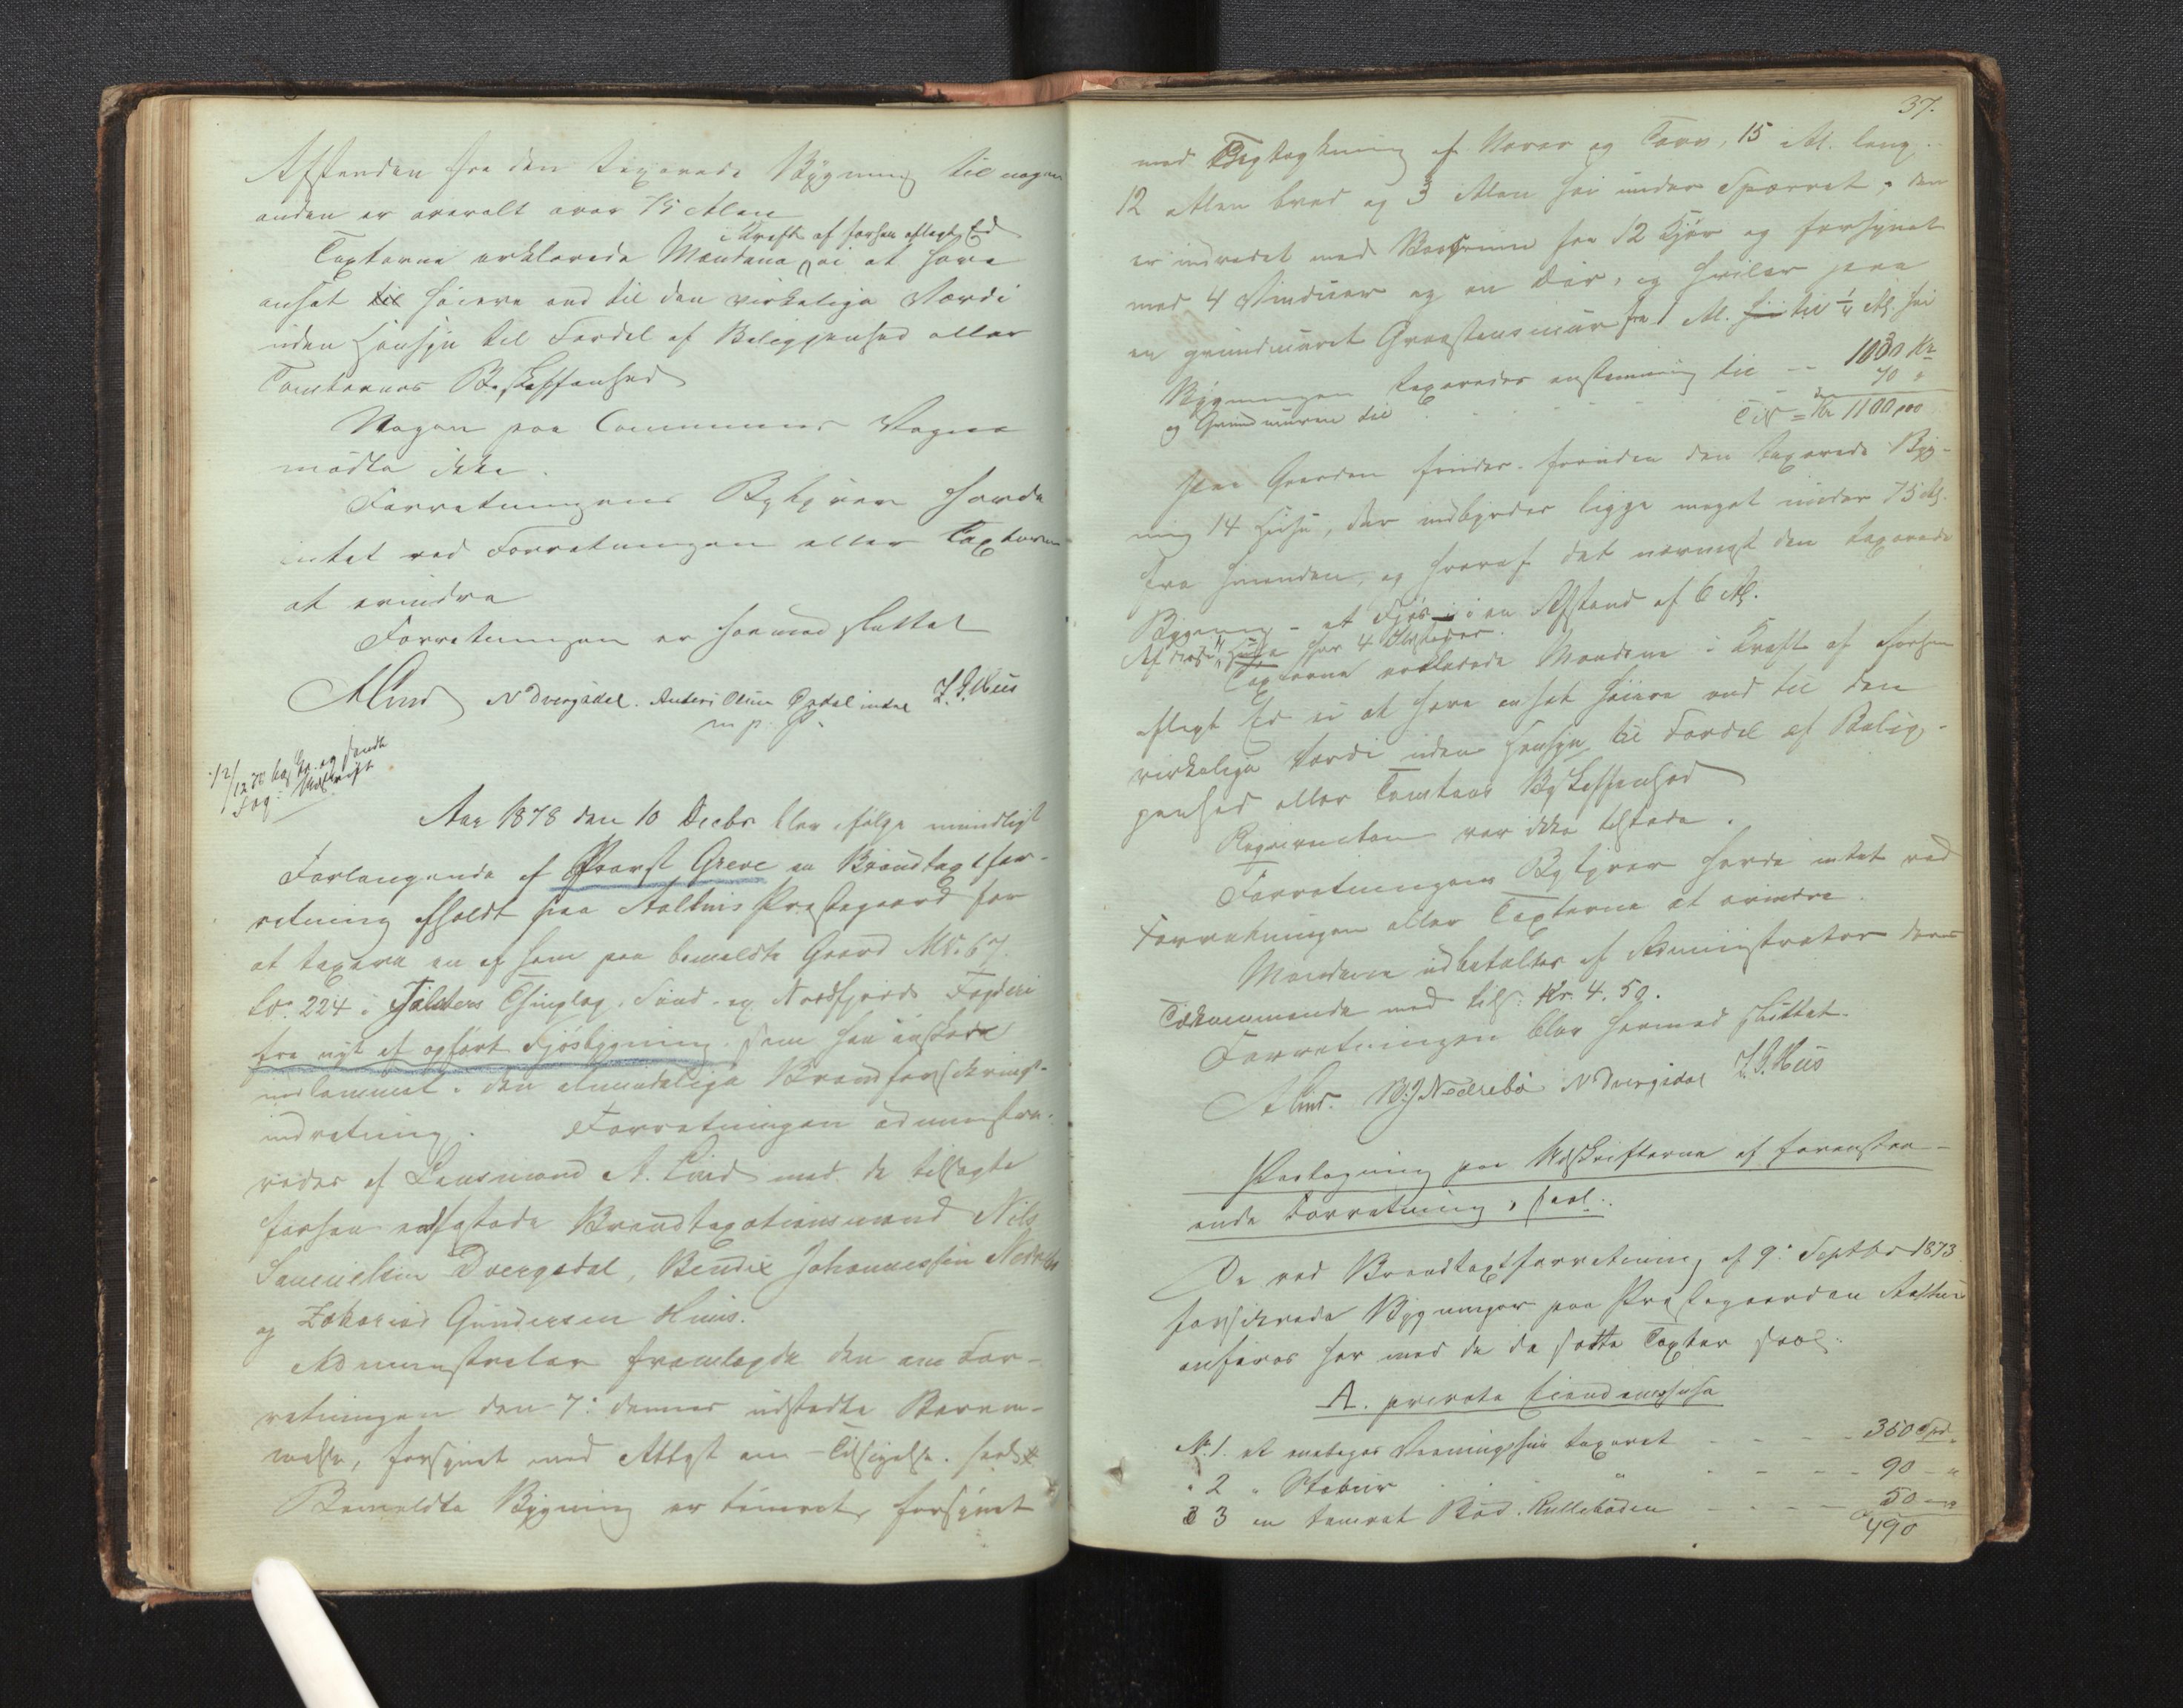 Afstanden fra den taxerede Bygning til nogen
anden er overalt over 75 Alen
Taxterne erklærede Mændene i Kraft af forhen aflagt Ed ei at have
ansat til høiere end til den virkelige Værdi
uden Hensyn til Fordel af Beliggenhed eller
Tomternes Beskaffenhed
Nogen paa Communens Vegne
mødte ikke.
Forretningens Bestyrer havde
intet ved Forretningen eller Taxterne
at erindre
Forretningen er hermed sluttet
A Lind N Dvergsdal. Anders Olsen Opdal Z. G. Huus
m. p. P.
12/12 78
Aar 1878 den 10 Decbr blev ifølge mundligt
Forlangende af Provst Greve en Brandtaxtfor-
retning afholdt paa Aalhus Præstegaard for
at taxere en af ham paa bemeldte Gaard M.No. 67.
L.No. 224 i Jølsters Thinglag, Sønd- og Nordfjords Fogderi
fra nyt af opført Fjøsbygning. som han ønskede
indlemmet i den almindelige Brandforsikrings-
indretning. Forretningen administre-
redes af Lensmand A. Lind med de tilsagte
forhen edfæstede Brandtaxationsmænd Nils
Samuelsen Dvergsdal, Bendix Johannessen Nedrebø
og Zakarias Gundersen Huus.
Administrator fremlagde den om For-
retningen den 7: dennes udstedte Beram-
melse, forsynet med Attest om Tilsigelse.
Bemeldte Bygning er tømret, forsynet
37.
med Tagtækning af Næver og Torv, 15 Al. lang
12 Alen bred og 3 Alen høi under Sparret, den
er indredet med Baasrum for 12 Kjør og forsynet
med 4 Vinduer og en Dør, og hviler paa
en grundmuret Graastensmur fra 1 Al. høi til 1/4 Al. høi
Bygningen taxeredes enstemmig til -- 1030 Kr
og Grundmuren til 70 "
Tils = Kr 1100,00
Paa Gaarden findes foruden den taxerede Byg-
ning 14 Huse, der indbyrdes ligge meget under 75 Al.
fra hinanden, og hvoraf det nærmest den taxerede
Bygning - et Fjøs - i en Afstand af 6 Al.
Af disse Huse har 4 Ildsteder.
Taxterne erklærede Mændene i Kraft af forhen
aflagt Ed ei at have ansat høiere end til den
virkelige Værdi uden Hensyn til Fordel af Belig-
genhed eller Tomtens Beskaffenhed
Requirenten var ikke tilstede.
Forretningens Bestyrer havde intet ved
Forretningen eller Taxterne at erindre.
Mændene udbetaltes af Administrator deres
Tilkommende med tils: Kr. 4. 50.
Forretningen blev hermed sluttet.
A Lind. B. J Nedrebø N Dvergsdal Z. G. Huus
Paategning paa Udskrifterne af foranstaa-
ende Forretning, saal:
De ved Brandtaxtforretning af 9: Septbr 1873
forsikrede Bygninger paa Præstegaarden Aalhus
anføres her med de da satte Taxter saal:
A. private Eiendomshuse
No. 1. et enetages Vaaningshus taxeret - - - - 350 Spd.
" 2 " Stabur " - - - 90 - "
" 3 en tømret Bod. Rulleboden - - - - 50 - "
490